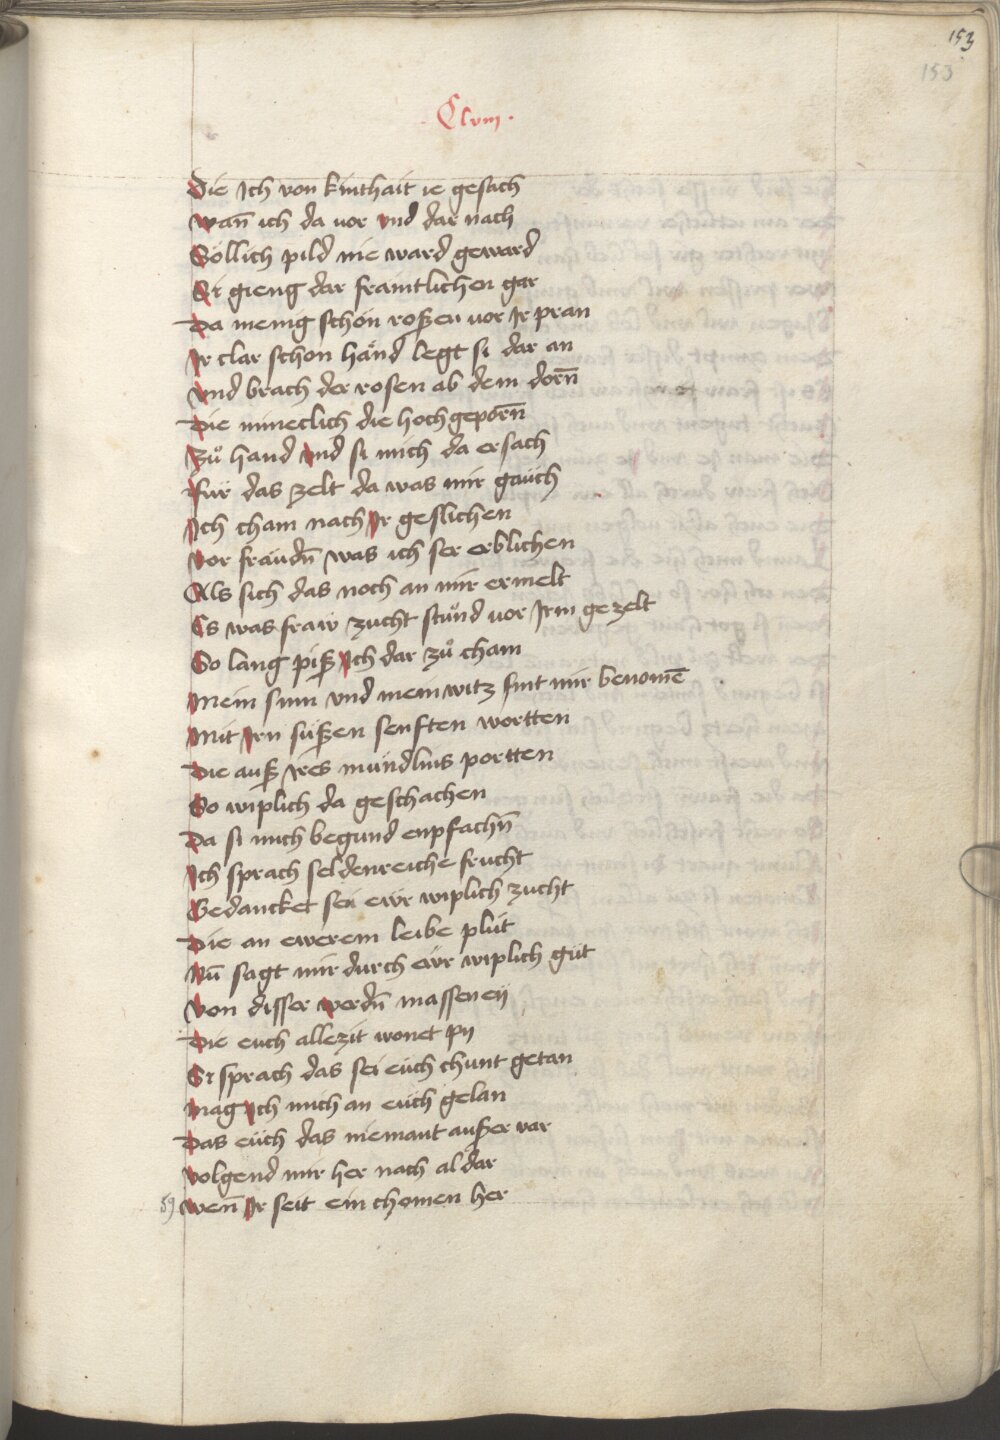 153
153
Clviij
Die Ich von kinthait ie gesach
Wan̄ ich da vor vnd dar nach
Söllich pild nie ward geward
Si gieng dar frawntlichen gar
Da menig schön roßen vor Ir pran
Ir clar schon händ legt si dar an
Vnd brach der rosen ab dem dorn̄
Die mineclich die hochgeporn̄
Zů hand vnd si mich da ersach
Für das zelt da was mir gäuch
Ich cham nach Ir geslichen
Vor fräudn̄ was ich ser erblichen
Als sich das noch an mir ermelt
Es was fraw zucht stůnd vor Irm gezelt
So lang piß Ich dar zů cham
Mein sinn vnd mein witz sint mir benomē
Mit Irn süßen senften wortten
Die auß Ires mündlins portten
So wiplich da geschachen
Da si mich begund enpfachn̄
Ich sprach seldenreiche frucht
Gedancket sei ewr wiplich zucht
Die an ewerem leibe plüt
Nū sagt mir durch ewr wiplich güt
Von disser werdn̄ masseneij
Die euch allezit wonet pij
Si sprach das sei eüch chunt getan
Mag Ich mich an eüch gelan
Das eüch das niemant außer var
Volgend mir her nach al dar
Wen̄ Ir seit ein chomen her